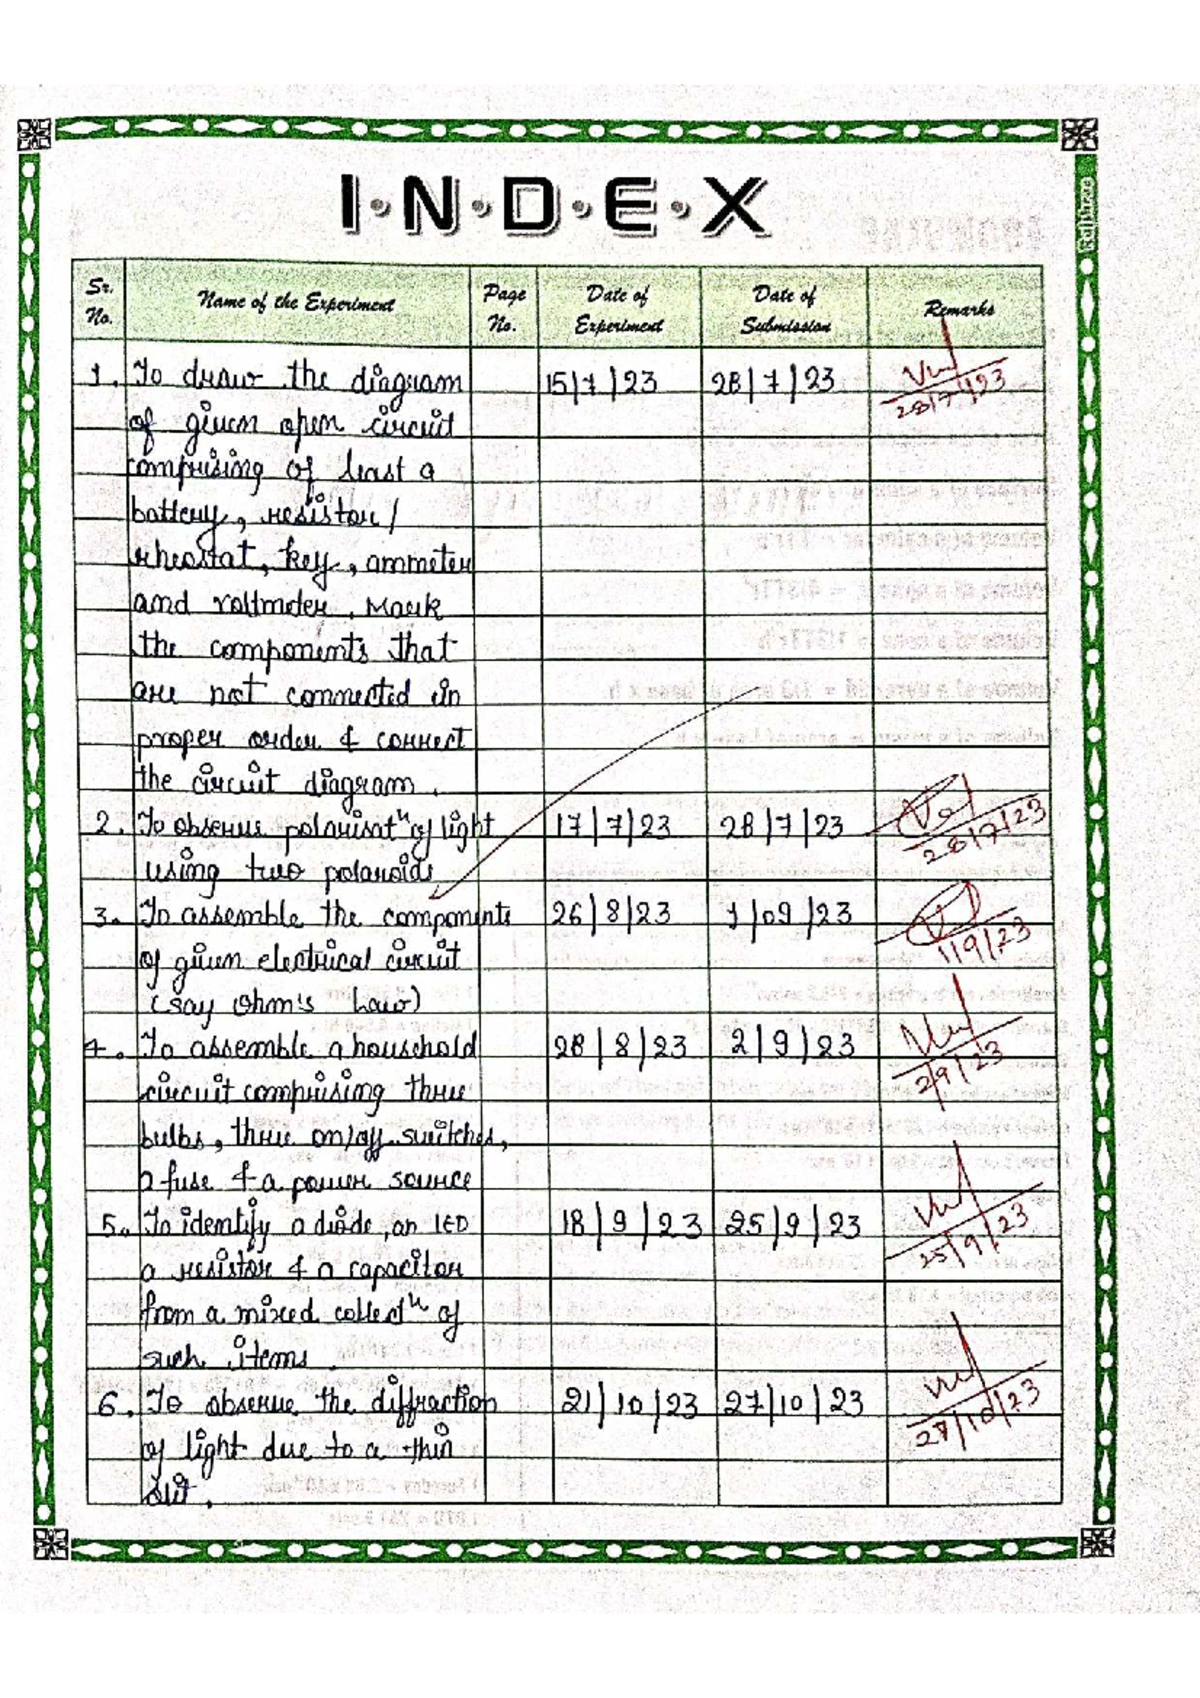 I·N·D·E·X
Sr. No. Name of the Experiment Page No. Date of Experiment Date of Submission Remarks
1. To draw the diagram 15/7/23 28/7/23 28/7/23
of given open circuit
comprising of least a
battery, resistor/
rheostat, key, ammeter
and voltmeter. Mark
the components that
are not connected in
proper order & correct
the circuit diagram.
2. To observe polarisatⁿ of light 17/7/23 28/7/23 28/7/23
using two polaroids
3. To assemble the components 26/8/23 1/09/23 1/9/23
of given electrical circuit
(say ohm's Law)
4. To assemble a household 28/8/23 2/9/23 2/9/23
circuit comprising three
bulbs, three on/off switches,
a fuse & a power source
5. To identify a diode, an LED 18/9/23 25/9/23 25/9/23
a resistor & a capacitor
from a mixed collectⁿ of
such items.
6. To observe the diffraction 21/10/23 27/10/23 27/10/23
of light due to a thin
slit.